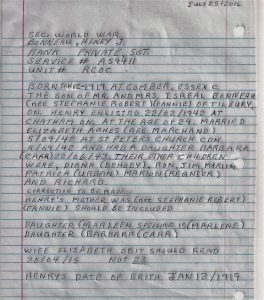 JULY 25/2016
SEC. WORLD WAR
BONNEAU, HENRY J.
RANK PRIVATE, SGT.
SERVICE # A59411
UNIT # RCOC
BORN 1919 AT COMBER, ESSEX C
THE SON OF MR. AND MRS. ISREAL BONNEAU
(NEE STEPHANIE ROBERT) (FANNIE) OF TILBURY,
ON. HENRY ENLISTED 22/02/1942 AT
CHATHAM ON, AT THE AGE OF 24. MARRIED
ELIZABETH AGNES (NEE MARCHAND)
5/09/42 AT ST PETERS CHURCH CON
8/09/42 AND HAD A DAUGHTER BARBARA
(CARR) 22/06/43. THEIR OTHER CHILDREN
WERE, DIANE, RON, JIM,
PATRICA (URBAN) MARION (REGNIER)
AND RICHARD.
CORRECTION TO BE MADE
HENRY'S MOTHER WAS (NEE STEPHANIE ROBERT)
(FANNIE) SHOULD BE INCLUDED
DAUGHTER (MARLEEN SPELLING IS (MARLENE)
DAUGHTER (BARBARA (CARR)
WIFE ELIZABETH OBIT SHOULD READ
20/04/15 NOT 23
HENRYS DATE OF BRITH JAN 12/1919